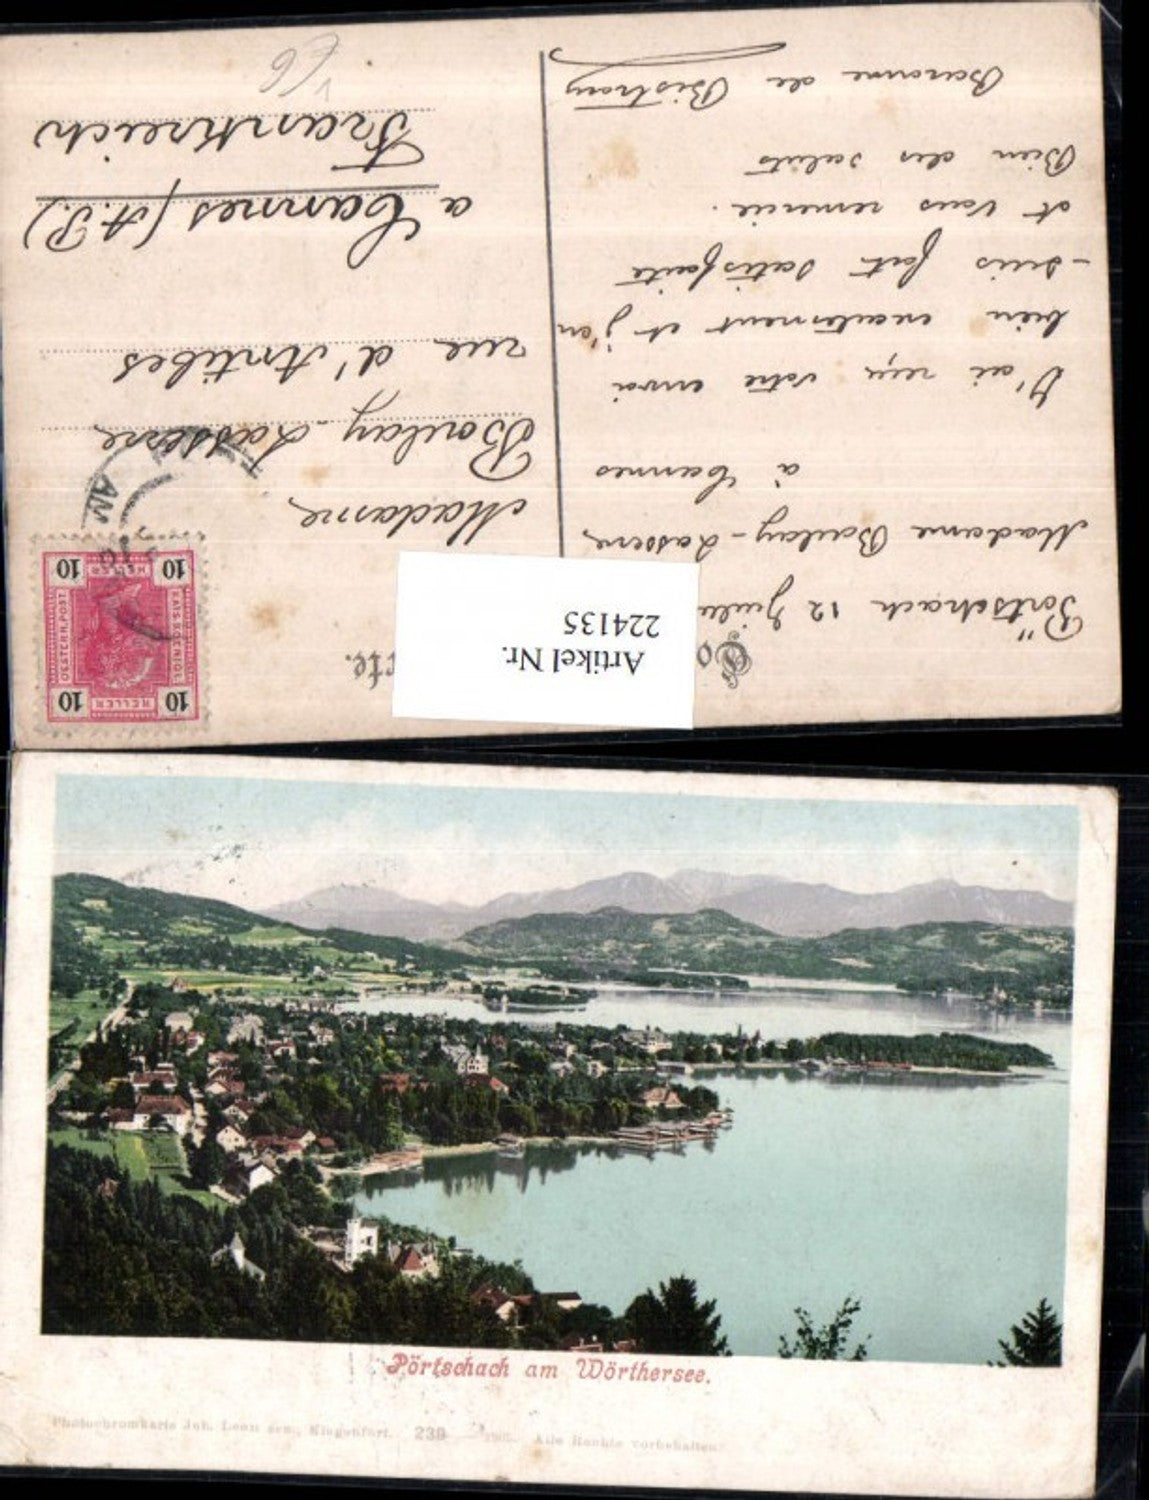 Artikel Nr.
224135
Pörtschach 12
Madame Baulay-Lasserre
à Cannes
J'ai reçu votre envoi
bien exactement et j'en
suis fort satisfaite
et vous remercie.
Bien des saluts
Baronne de
Madame
Baulay-Lasserre
rue d'Antibes
a Cannes (A.P.)
Frankreich
10 HELLER 10
KAIS. KOENIGL.
OESTERR. POST
10 HELLER 10
Pörtschach am Wörthersee.
Photochromkarte Joh. Leon sen., Klagenfurt. 239 Alle Rechte vorbehalten.